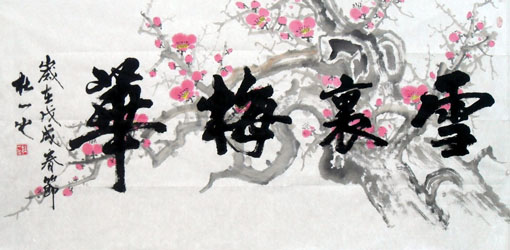 雪裏梅華
歲在戊戌春節
杜一史